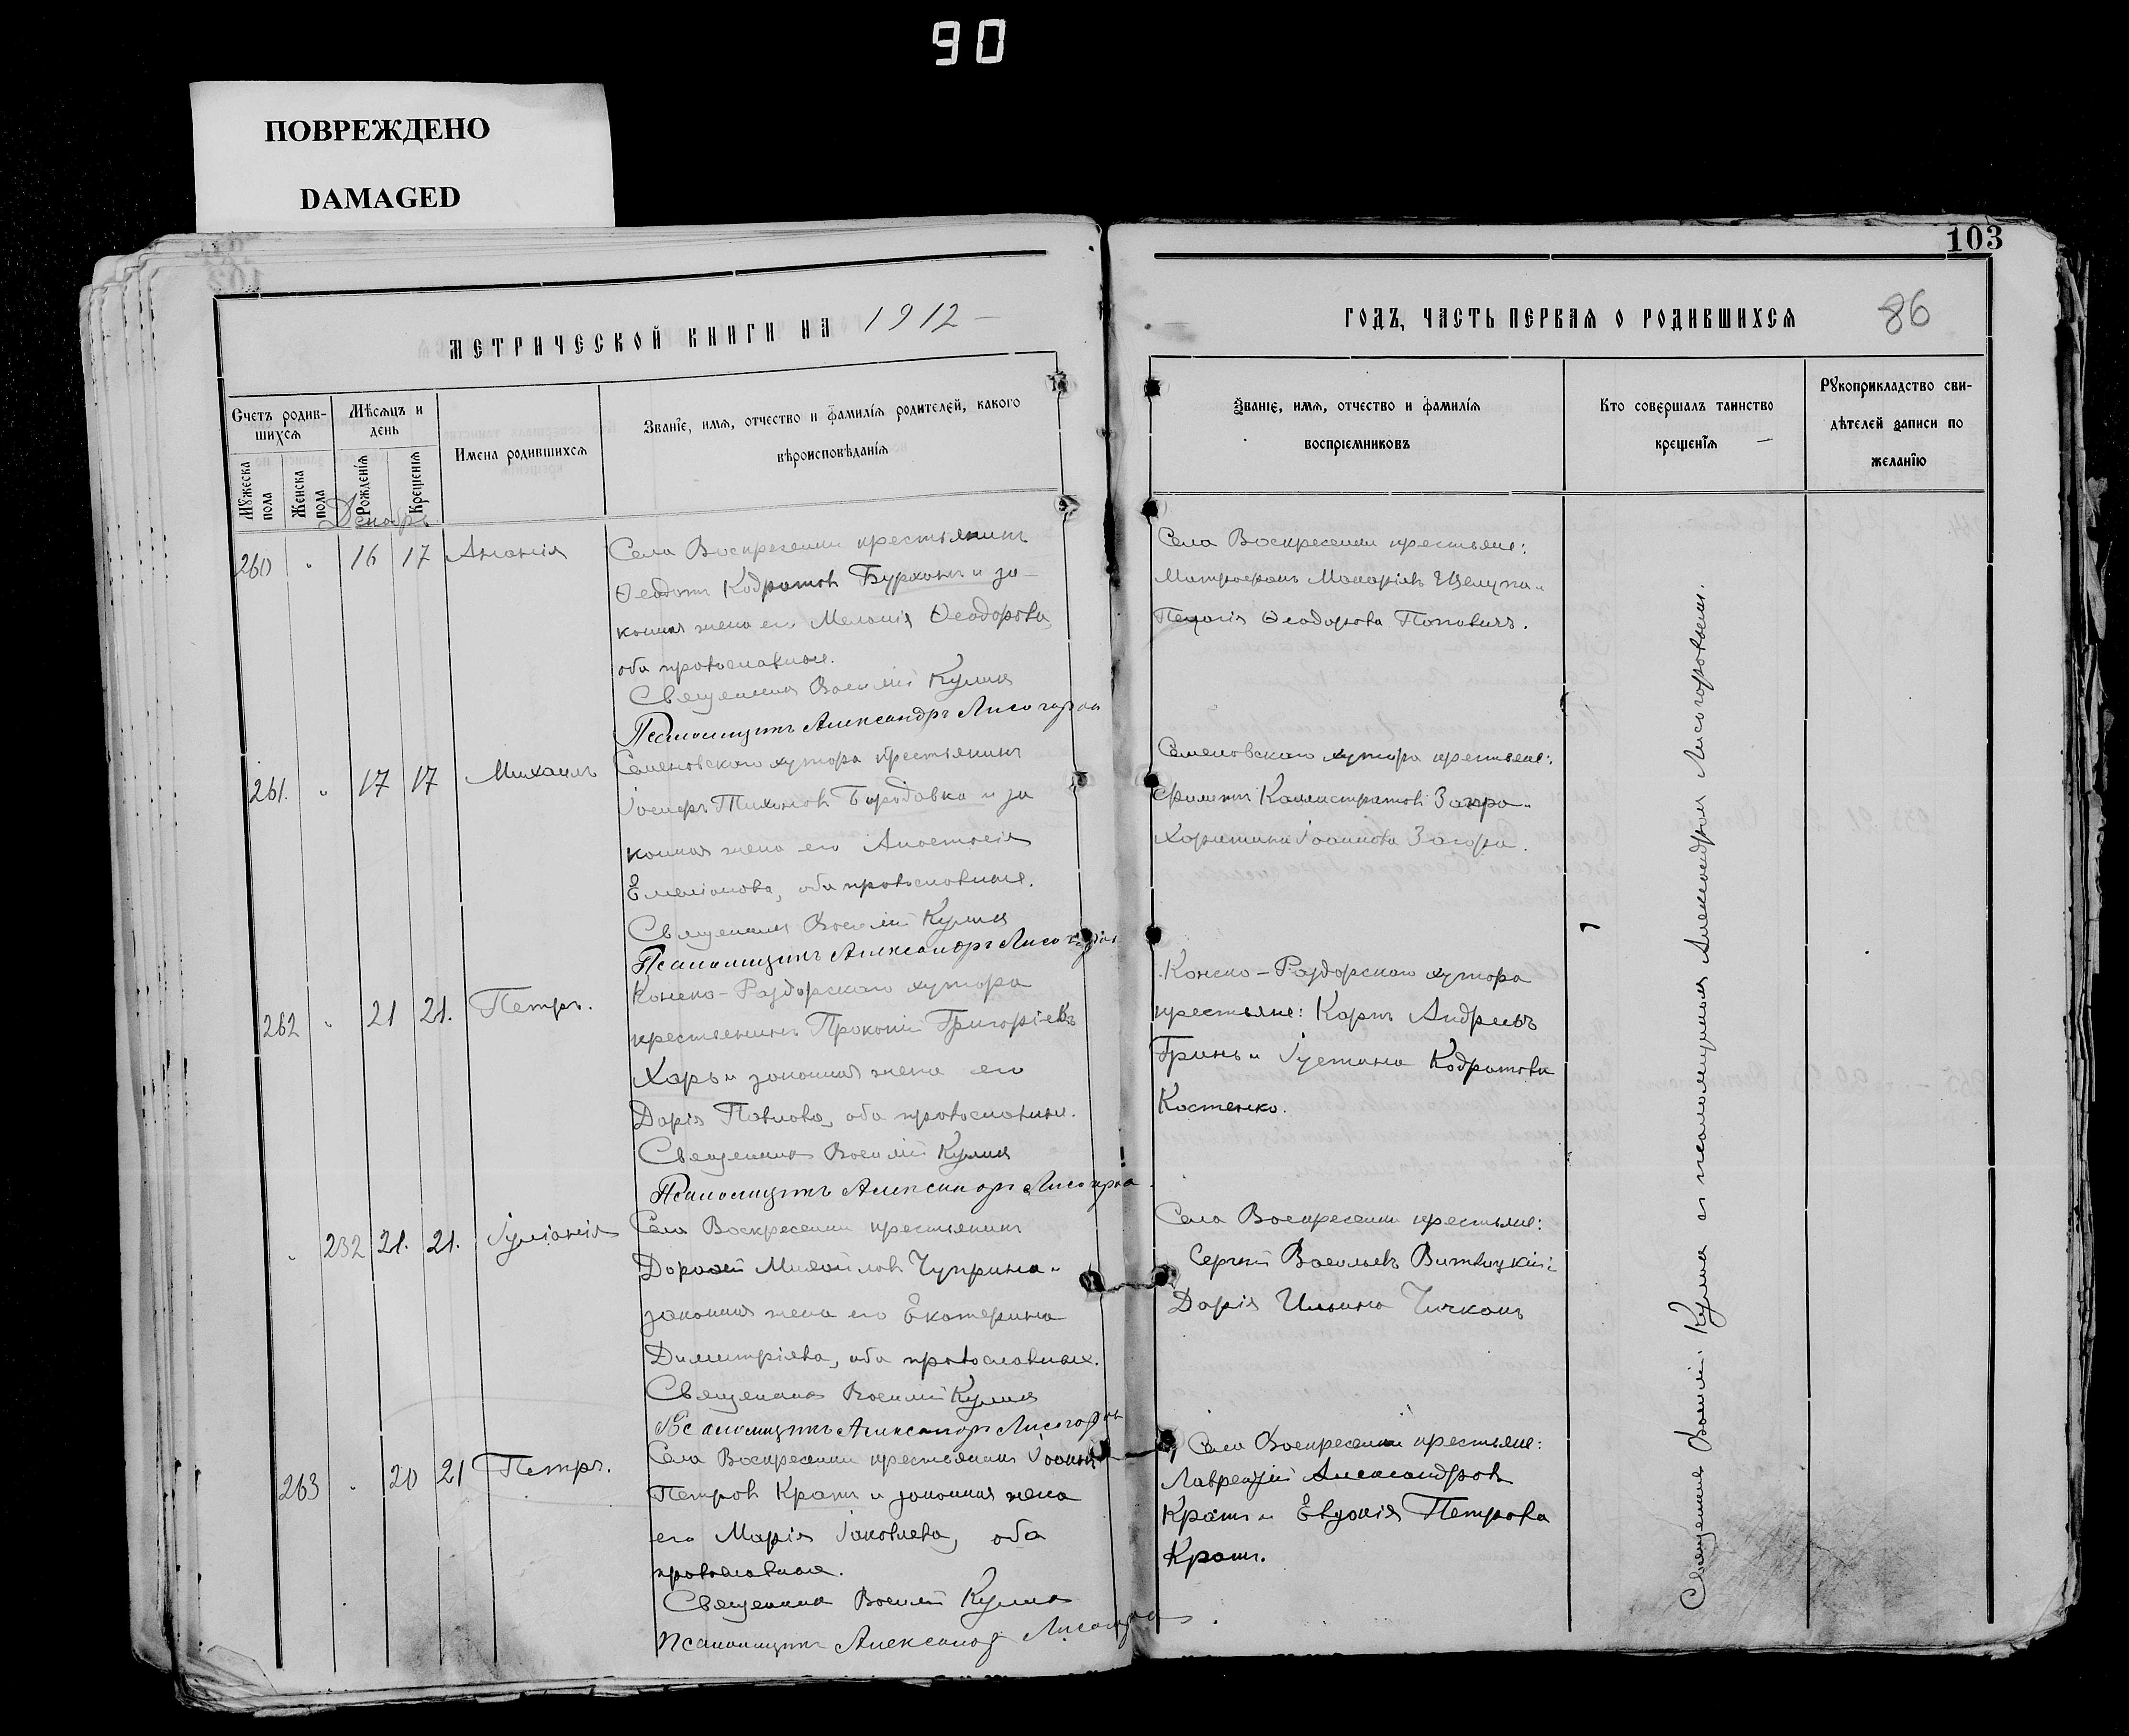 90
ПОВРЕЖДЕНО
DAMAGED
103
МЕТРИЧЕСКОЙ КНИГИ НА 1912
ГОДЪ, ЧАСТЬ ПЕРВАЯ О РОДИВШИХСЯ
86
Счетъ родив-
шихся
Мѣсяцъ и
день
Имена родившихся
Званіе, имя, отчество и фамилія родителей, какого
вѣроисповѣданія
Мужеска
пола
Женска
пола
Рожденія
Крещенія
Званіе, имя, отчество и фамилія
воспріемниковъ
Кто совершалъ таинство
крещенія
Рукоприкладство сви-
дѣтелей записи по
желанію
Декабрь
260 " 16 17 Ананія
Села Воскресенки крестьянинъ
Ѳеодотъ Кодратовъ Бурханъ и за-
конная жена его Меланія Ѳеодорова,
оба православные.
Священникъ Василій Кулик
Псаломщикъ Александръ Лисогорскій
Села Воскресенки крестьяне:
Митрофанъ Макаріевъ Щелупа и
Пелагія Ѳеодорова Поповичъ.
261. " 17 17 Михаилъ
Семеновскаго хутора крестьянинъ
Іосифъ Тихоновъ Бородавка и за
конная жена его Анастасія
Емеліанова, оба православные.
Священникъ Василій Кулик
Псаломщикъ Александръ
Семеновскаго хутора крестьяне:
Филиппъ Каллистратовъ
Харитина Іоаннова
262 " 21 21. Петръ.
Конско-Раздорскаго хутора
крестьянинъ Прокопій Григоріевъ
Харь и законная жена его
Дарія Павлова, оба православные.
Священникъ Василій Кулик
Псаломщикъ Александръ
Конско-Раздорскаго хутора
крестьяне: Карпъ Андреевъ
Гринь и Іустина Кодратова
Костенко.
" 232 21. 21. Іуліанія
Села Воскресенки крестьянинъ
Дороѳей Михайловъ Чуприна и
законная жена его Екатерина
Димитріева, оба православные.
Священникъ Василій Кулик
Псаломщикъ Александръ
Села Воскресенки крестьяне:
Сергій Васильевъ
Дарія Ильина
263 " 20 21 Петръ.
Села Воскресенки крестьянинъ Іоаннъ
Петровъ Кратъ и законная жена
его Марія Іаковлева, оба
православные.
Священникъ Василій Кулик
Псаломщикъ Александръ
Села Воскресенки крестьяне:
Лаврентій Александровъ
Кратъ и Евдокія Петрова
Кратъ.
Священникъ Василій Кулик съ псаломщикомъ Александромъ